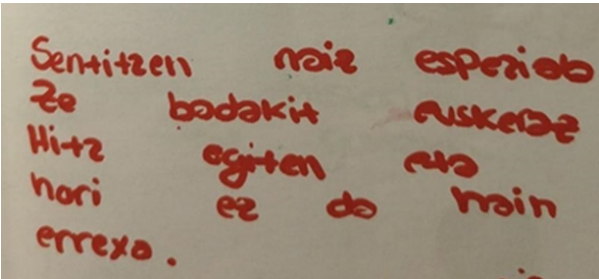 Sentitzen naiz espeziala
ze badakit euskeraz
Hitz egiten eta
hori ez da hain
errexa.